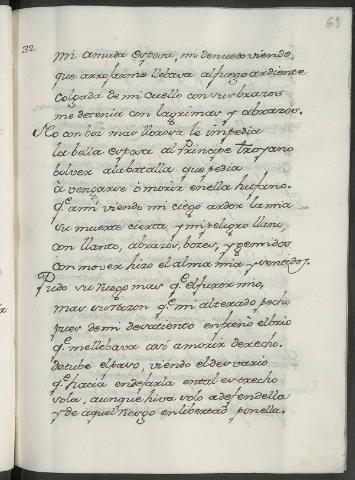 69
32.
mi amada esposa, mi denuedo viendo,
que arrojarme llebava al fuego ardiente
Colgada de mi cuello con sus brazos
me detenia con lagrimas y abrazos.
No con boz mas llorosa le impedia
la bella esposa al Principe troyano
bolver a la batalla que pedia
à vengarse ò morir en ella hufano.
qe. a mi viendo mi ciego ardor la mia
su muerte cierta y mi peligro llano,
con llanto, abrazos, bozes, y gemidos
conmover hizo el alma mia y sentidos.
Pudo su ruego mas qe. el furor mio,
mas su razon qe. mi alterado pecho
pues de mi desatiento enfrenò el brio
qe. me llebava asi a morir derecho.
detube el paso, viendo el desvario
qe. hazia en dejarla en tal estrecho
sola, aunque hiva solo a defendella
y de aquel riesgo en libertad ponella.